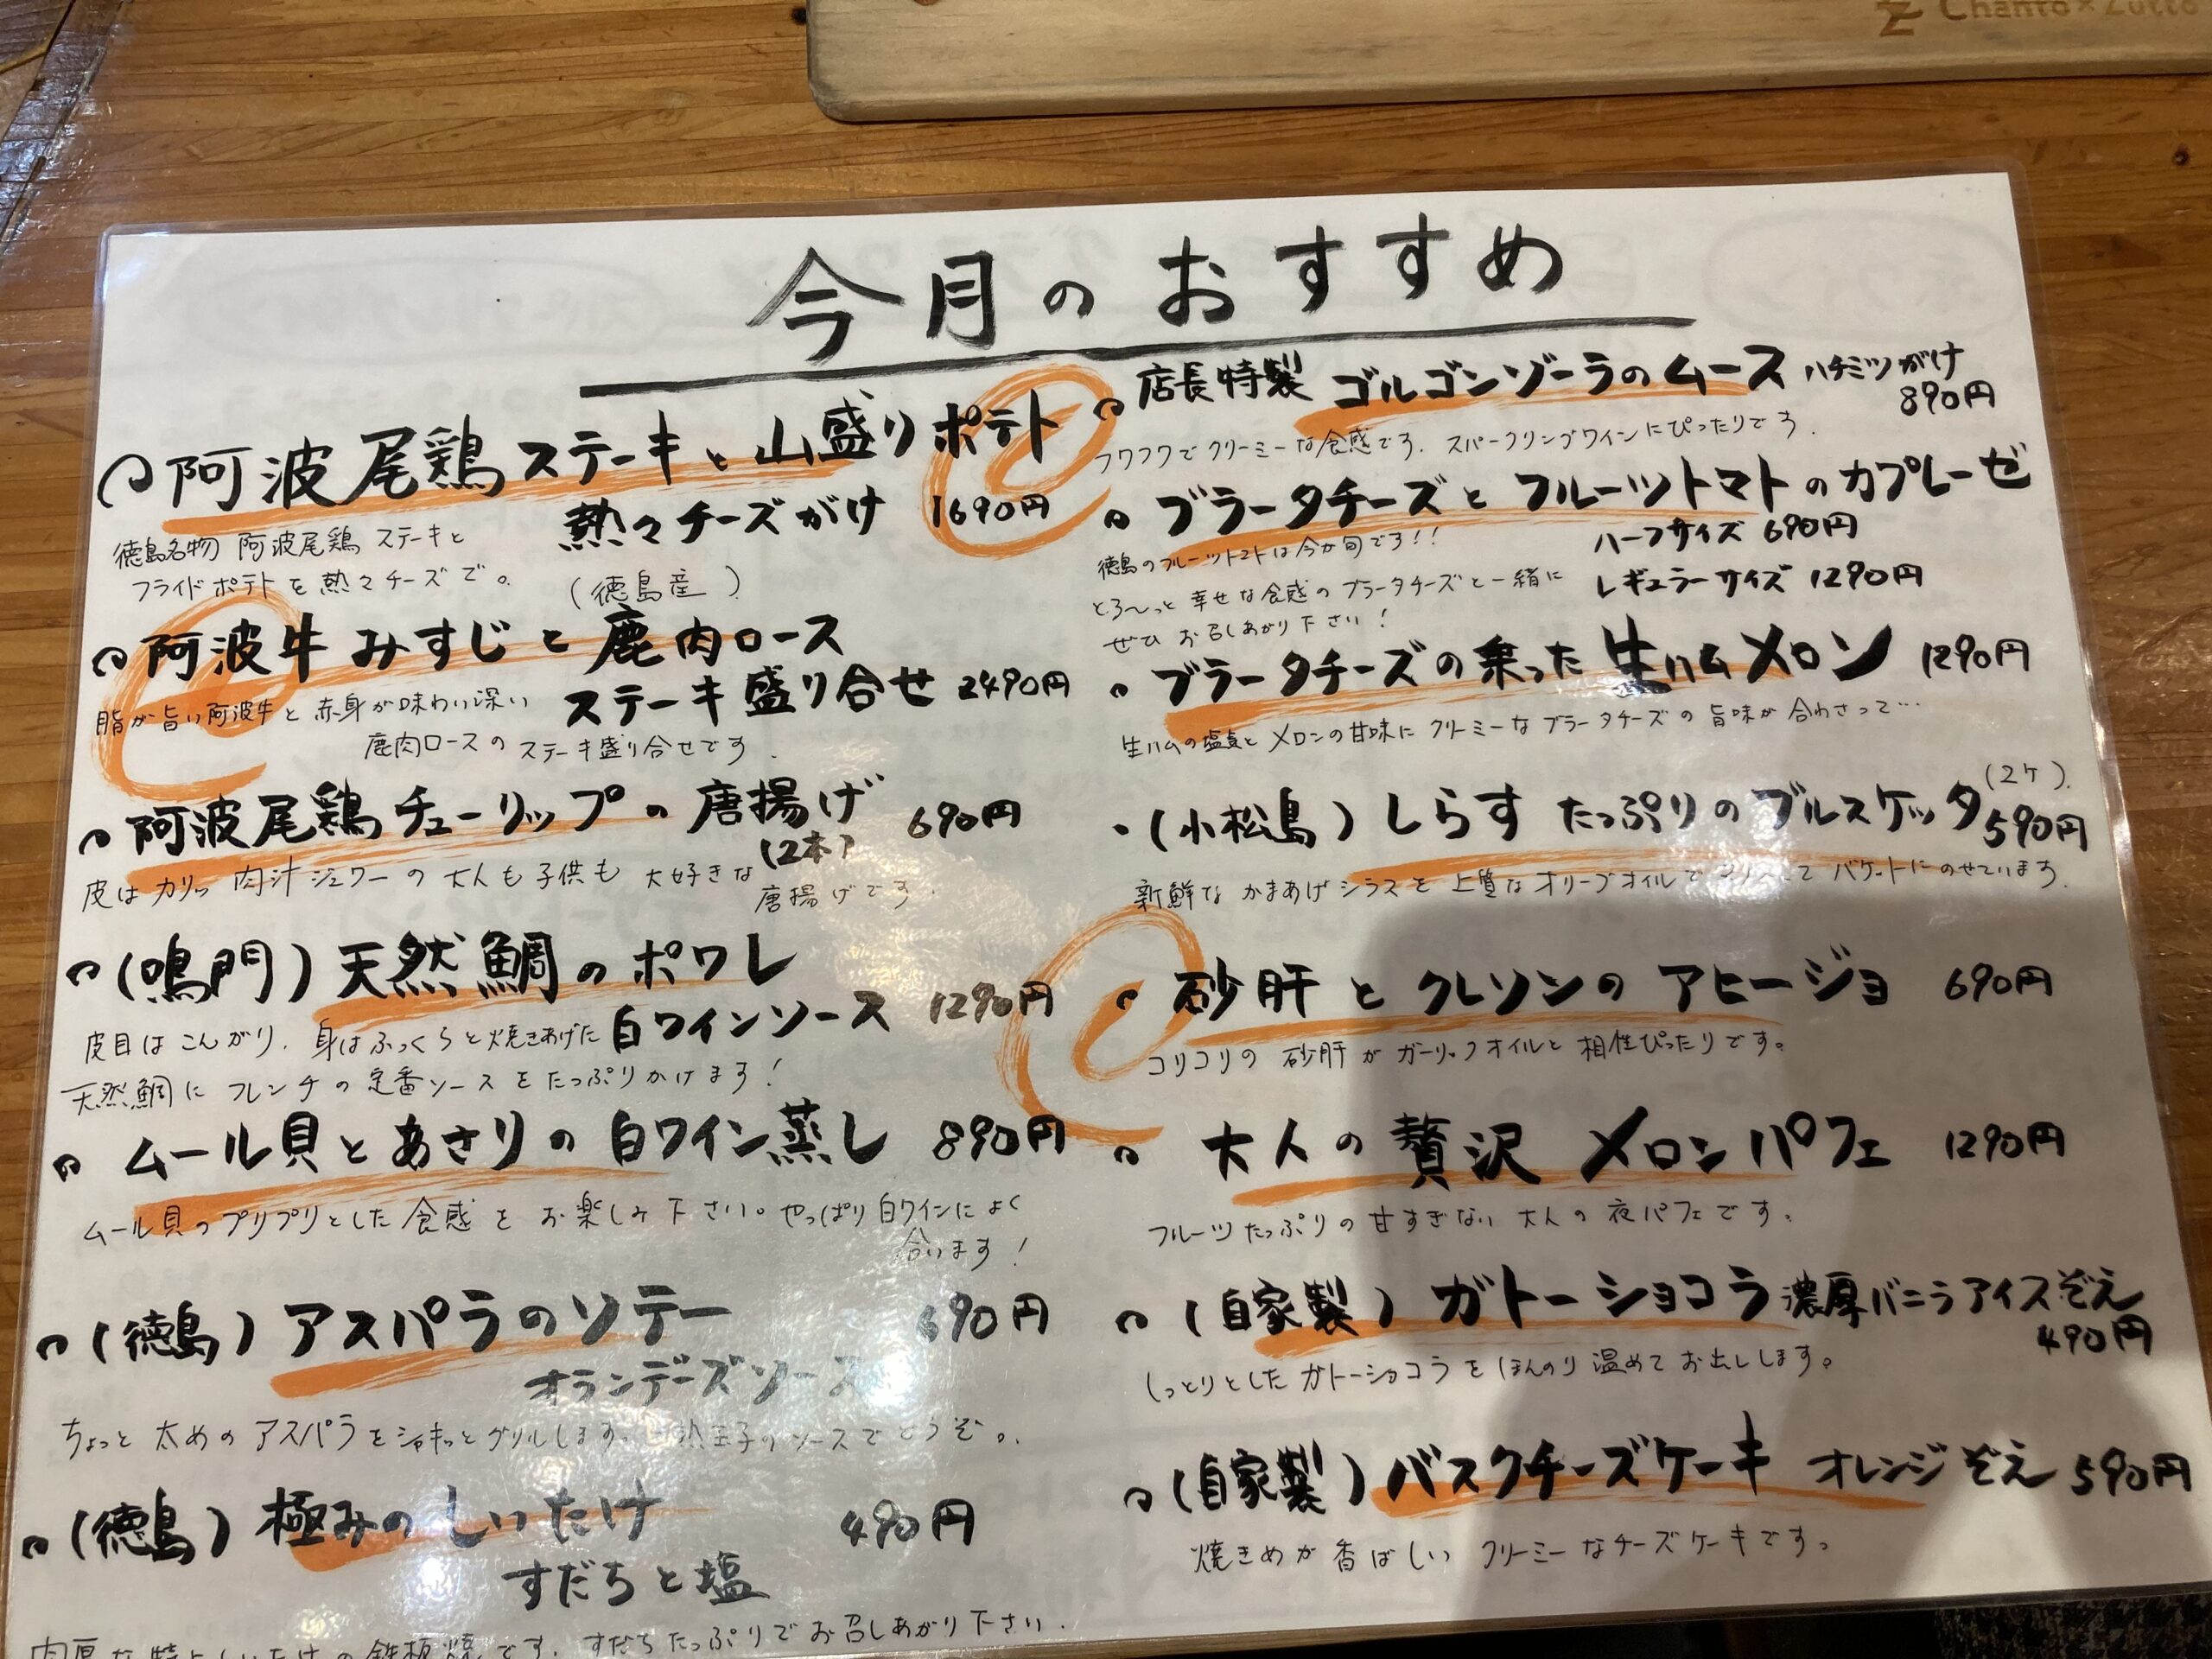 Chanto×Zutto
今月のおすすめ
阿波尾鶏ステーキと山盛りポテト
熱々チーズがけ 1690円
徳島名物 阿波尾鶏ステーキと
フライドポテトを熱々チーズで。
(徳島産)
阿波牛みすじと鹿肉ロース
ステーキ盛り合せ 2490円
脂が旨い阿波牛と赤身が味わい深い
鹿肉ロースのステーキ盛り合せです.
阿波尾鶏チューリップの唐揚げ
(2本) 690円
皮はカリッ肉汁ジュワーの大人も子供も大好きな
唐揚げです.
(鳴門)天然鯛のポワレ
白ワインソース 1290円
皮目はこんがり、身はふっくらと焼きあげた
天然鯛にフレンチの定番ソースをたっぷりかけます!
ムール貝とあさりの白ワイン蒸し 890円
ムール貝のプリプリとした食感をお楽しみ下さい。やっぱり白ワインによく
合います!
(徳島)アスパラのソテー 690円
オランデーズソース
ちょっと太めのアスパラをシャキッとグリルします。 玉子のソースでどうぞ。
(徳島)極みのしいたけ 490円
すだちと塩
です. すだちたっぷりでお召しあがり下さい.
店長特製 ゴルゴンゾーラのムース ハチミツがけ
890円
フワフワでクリーミーな食感です. スパークリングワインにぴったりです.
ブラータチーズとフルーツトマトのカプレーゼ
ハーフサイズ 690円
レギュラーサイズ 1290円
徳島のフルーツトマトは今が旬です!!
とろ〜っと幸せな食感のブラータチーズと一緒に
ぜひお召しあがり下さい!
ブラータチーズの乗った生ハムメロン 1290円
生ハムの塩気とメロンの甘味にクリーミーなブラータチーズの旨味が合わさって…
(小松島)しらすたっぷりのブルスケッタ (2ケ).
590円
新鮮なかまあげシラスを上質なオリーブオイルで バケットにのせています.
砂肝とクレソンのアヒージョ 690円
コリコリの砂肝がガーリックオイルと相性ぴったりです。
大人の贅沢メロンパフェ 1290円
フルーツたっぷりの甘すぎない大人の夜パフェです。
(自家製)ガトーショコラ 濃厚バニラアイスぞえ
490円
しっとりとしたガトーショコラをほんのり温めてお出しします。
(自家製)バスクチーズケーキ オレンジぞえ 590円
焼きめが香ばしいクリーミーなチーズケーキです。